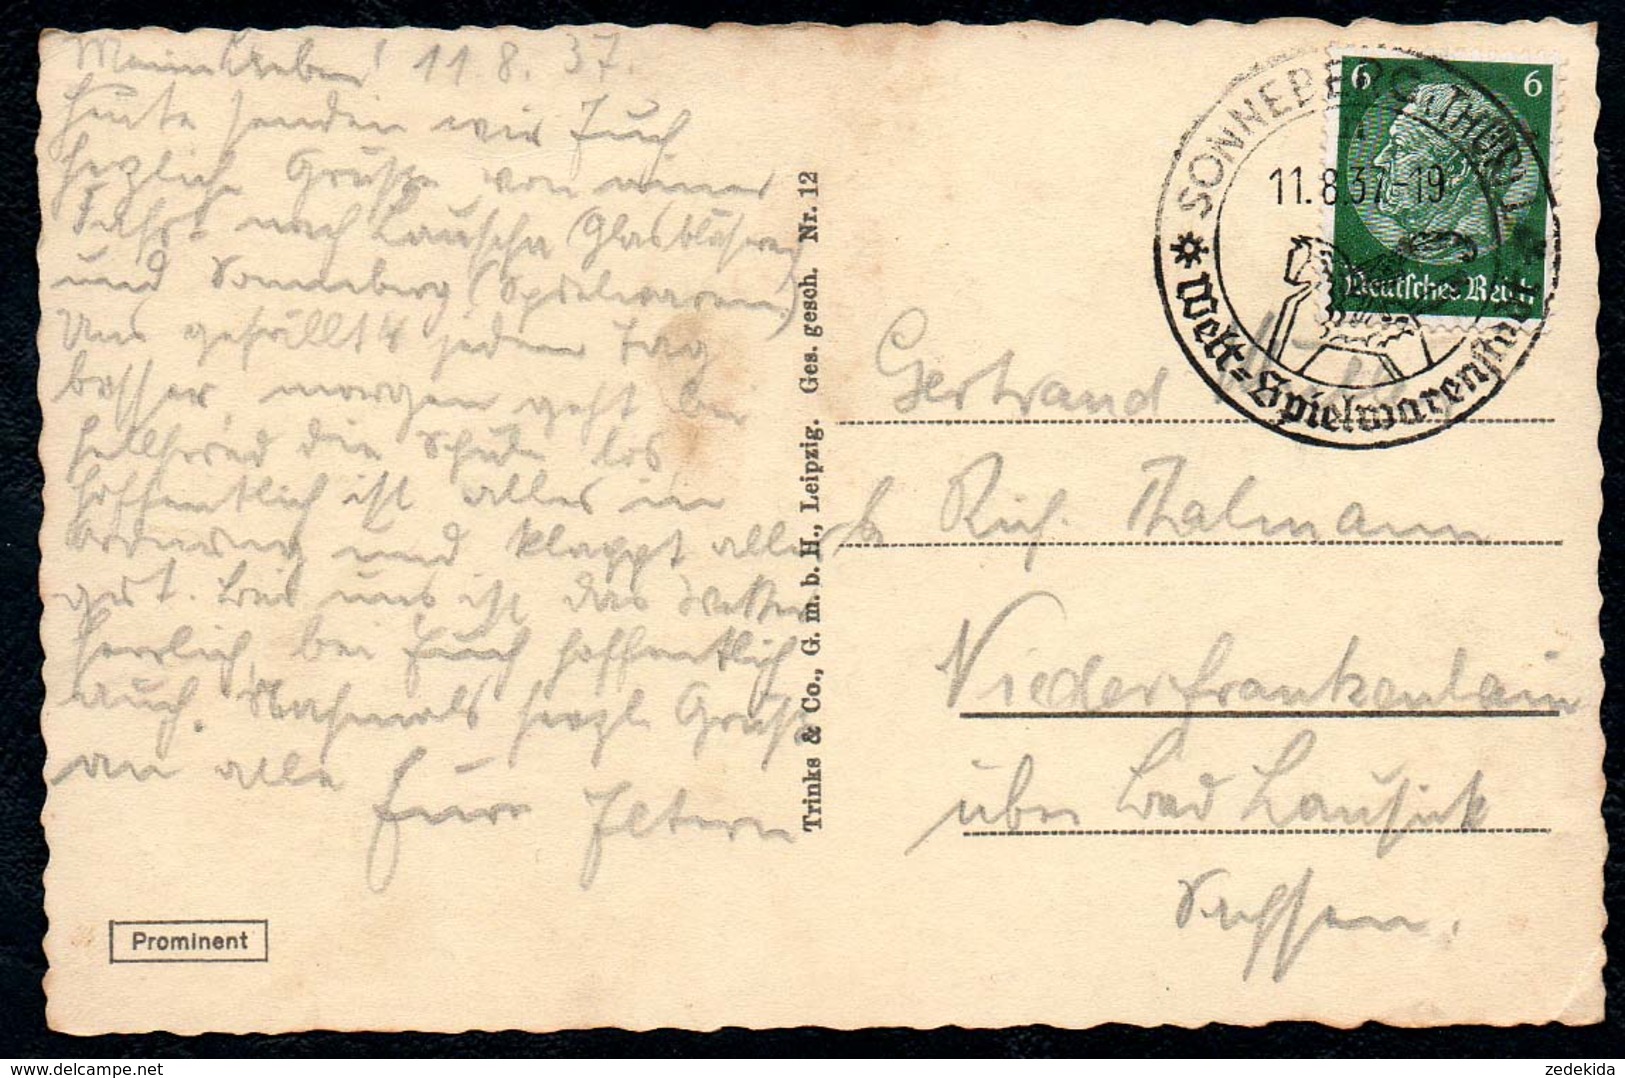 Meine Lieben! 11.8.37.
Heute senden wir Euch
herzliche Grüße von einer
Fahrt nach Lauscha (Glasbläserei)
und Sonneberg (Spielwaren)
Uns gefällt's jeden Tag
besser, morgen geht bei
Hellfried die Schule los,
hoffentlich ist alles in
Ordnung und klappt alles
gut. Bei uns ist das Wetter
herrlich, bei Euch hoffentlich
auch. Nochmals herzl. Grüße
an alle
Eure Eltern
Prominent
Trinks & Co., G. m. b. H., Leipzig. Ges. gesch. Nr. 12
SONNEBERG (THÜR) 1
11.8.37.-19
Welt-Spielwarenstadt
6 6
Deutsches Reich
Gertraud
b. Rich. Thalmann
Niederfrankenhain
über Bad Lausick
Sachsen.
zedekida